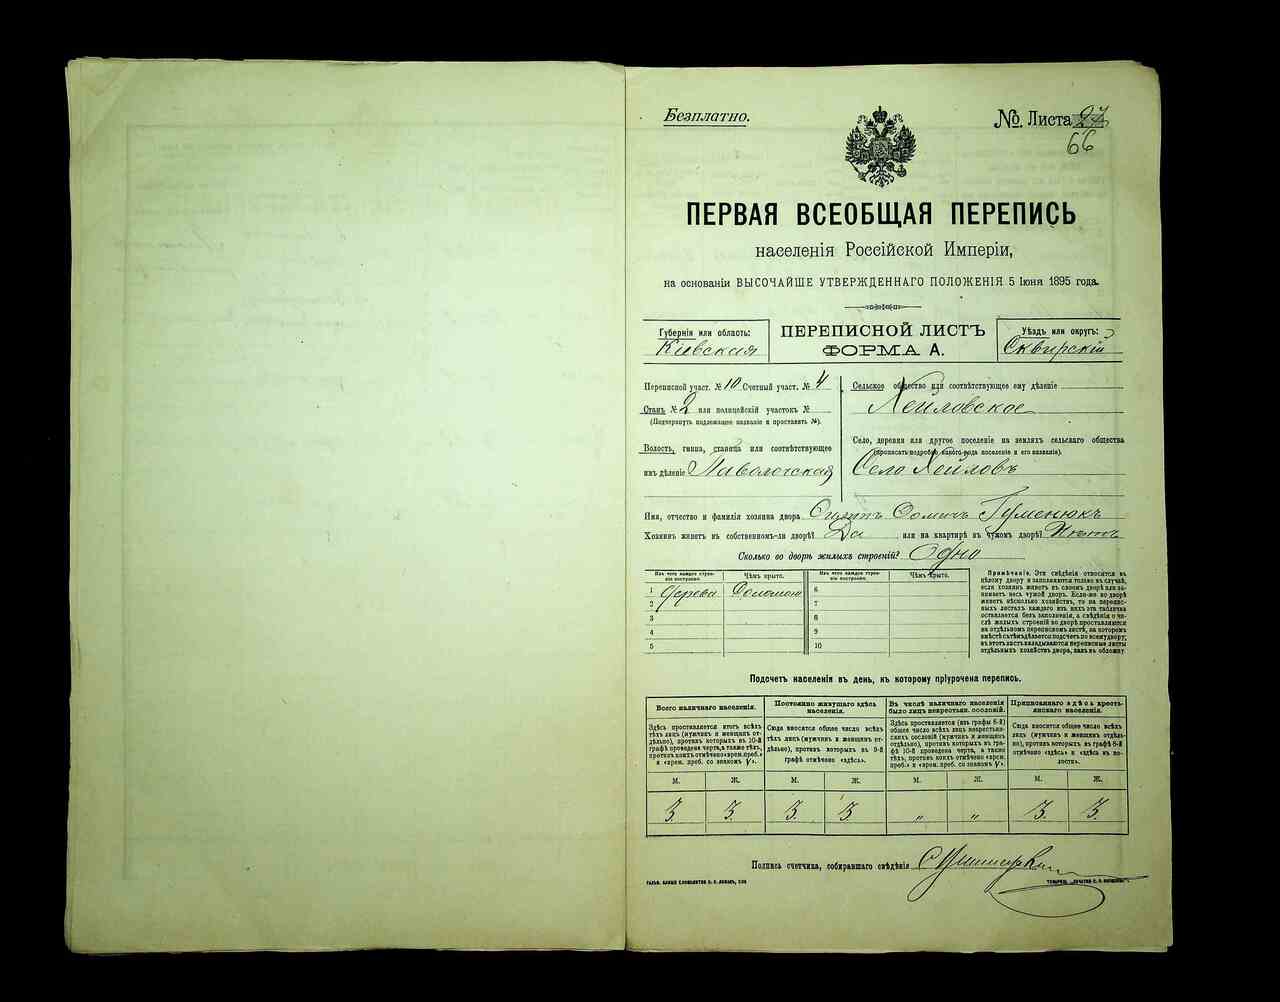 Безплатно.
№ Листа 27
66
ПЕРВАЯ ВСЕОБЩАЯ ПЕРЕПИСЬ
населенія Россійской Имперіи,
на основаніи ВЫСОЧАЙШЕ УТВЕРЖДЕННАГО ПОЛОЖЕНІЯ 5 Іюня 1895 года.
Губернія или область:
Кіевская
ПЕРЕПИСНОЙ ЛИСТЪ
ФОРМА А.
Уѣздъ или округъ:
Сквирскій
Переписной участ. № 10 Счетный участ. № 4
Станъ № 2 или полицейскій участокъ №
(Подчеркнуть подлежащее названіе и проставить №).
Волость, гмина, станица или соотвѣтствующее
имъ дѣленіе Паволочская
Сельское общество или соотвѣтствующее ему дѣленіе
Хейловское
Село, деревня или другое поселеніе на земляхъ сельскаго общества
(прописать подробно какого рода поселеніе и его названіе).
Село Хейловъ
Имя, отчество и фамилія хозяина двора Гуменюкъ
Хозяинъ живетъ въ собственномъ-ли дворѣ? Да или на квартирѣ въ чужомъ дворѣ? Нѣтъ
Сколько во дворѣ жилыхъ строеній? Одно
Изъ чего каждое строеніе построено.
Чѣмъ крыто.
Изъ чего каждое строеніе построено.
Чѣмъ крыто.
1 Дерева Соломою
2
3
4
5
6
7
8
9
10
Примѣчаніе. Эти свѣдѣнія относятся къ
цѣлому двору и заполняются только въ случаѣ,
если хозяинъ живетъ въ своемъ дворѣ или занимаетъ
весь чужой дворъ. Если-же во дворѣ
живетъ нѣсколько хозяйствъ, то на переписныхъ
листахъ каждаго изъ нихъ эта табличка
оставляется безъ заполненія, а свѣдѣнія о числѣ
жилыхъ строеній во дворѣ проставляются
на отдѣльномъ переписномъ листѣ, на которомъ
вмѣстѣ съ тѣмъ дѣлается подсчетъ по всему двору;
въ этотъ листъ вкладываются переписные листы
отдѣльныхъ хозяйствъ двора, какъ въ обложку.
Подсчетъ населенія въ день, къ которому пріурочена перепись.
Всего наличнаго населенія.
Здѣсь проставляется итогъ всѣхъ
тѣхъ лицъ (мужчинъ и женщинъ отдѣльно),
противъ которыхъ въ 10-й
графѣ проведена черта, а также тѣхъ,
противъ коихъ отмѣчено «врем. преб.»
и «врем. преб. со знакомъ V».
Постоянно живущаго здѣсь
населенія.
Сюда вносятся общее число всѣхъ
тѣхъ лицъ (мужчинъ и женщинъ отдѣльно),
противъ которыхъ въ 9-й
графѣ отмѣчено «здѣсь».
Въ числѣ наличнаго населенія
было лицъ некрестьян. сословій.
Здѣсь проставляется (изъ графы 6-й)
общее число всѣхъ лицъ некрестьянскихъ
сословій (мужчинъ и женщинъ
отдѣльно), противъ которыхъ въ графѣ
10-й проведена черта, а также
тѣхъ, противъ коихъ отмѣчено «врем.
преб.» и «врем. преб. со знакомъ V».
Приписаннаго здѣсь крестьянскаго
населенія.
Сюда вносятся общее число всѣхъ
лицъ (мужчинъ и женщинъ отдѣльно),
противъ которыхъ въ графѣ 8-й
отмѣчено «здѣсь» и «здѣсь въ волости».
М. Ж. М. Ж. М. Ж. М. Ж.
3. 3. 3. 3 „ „ 3. 3.
Подпись счетчика, собиравшаго свѣдѣнія